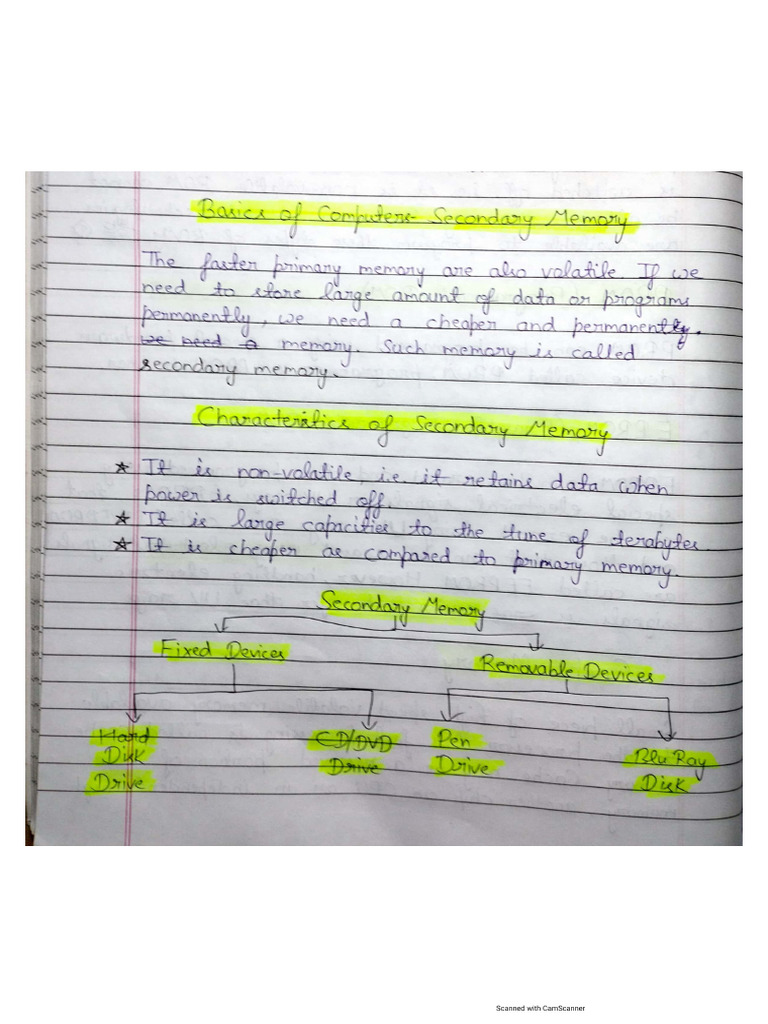 Basics of Computers - Secondary Memory
The faster primary memory are also volatile. If we
need to store large amount of data or programs
permanently, we need a cheaper and permanently.
we need a memory. Such memory is called
secondary memory.
Characteristics of Secondary Memory
★ It is non-volatile, i.e. it retains data when
power is switched off.
★ It is large capacities to the tune of terabytes.
★ It is cheaper as compared to primary memory.
Secondary Memory
Fixed Devices
Removable Devices
Hard Disk Drive
CD/DVD Drive
Pen Drive
Blu Ray Disk
Scanned with CamScanner